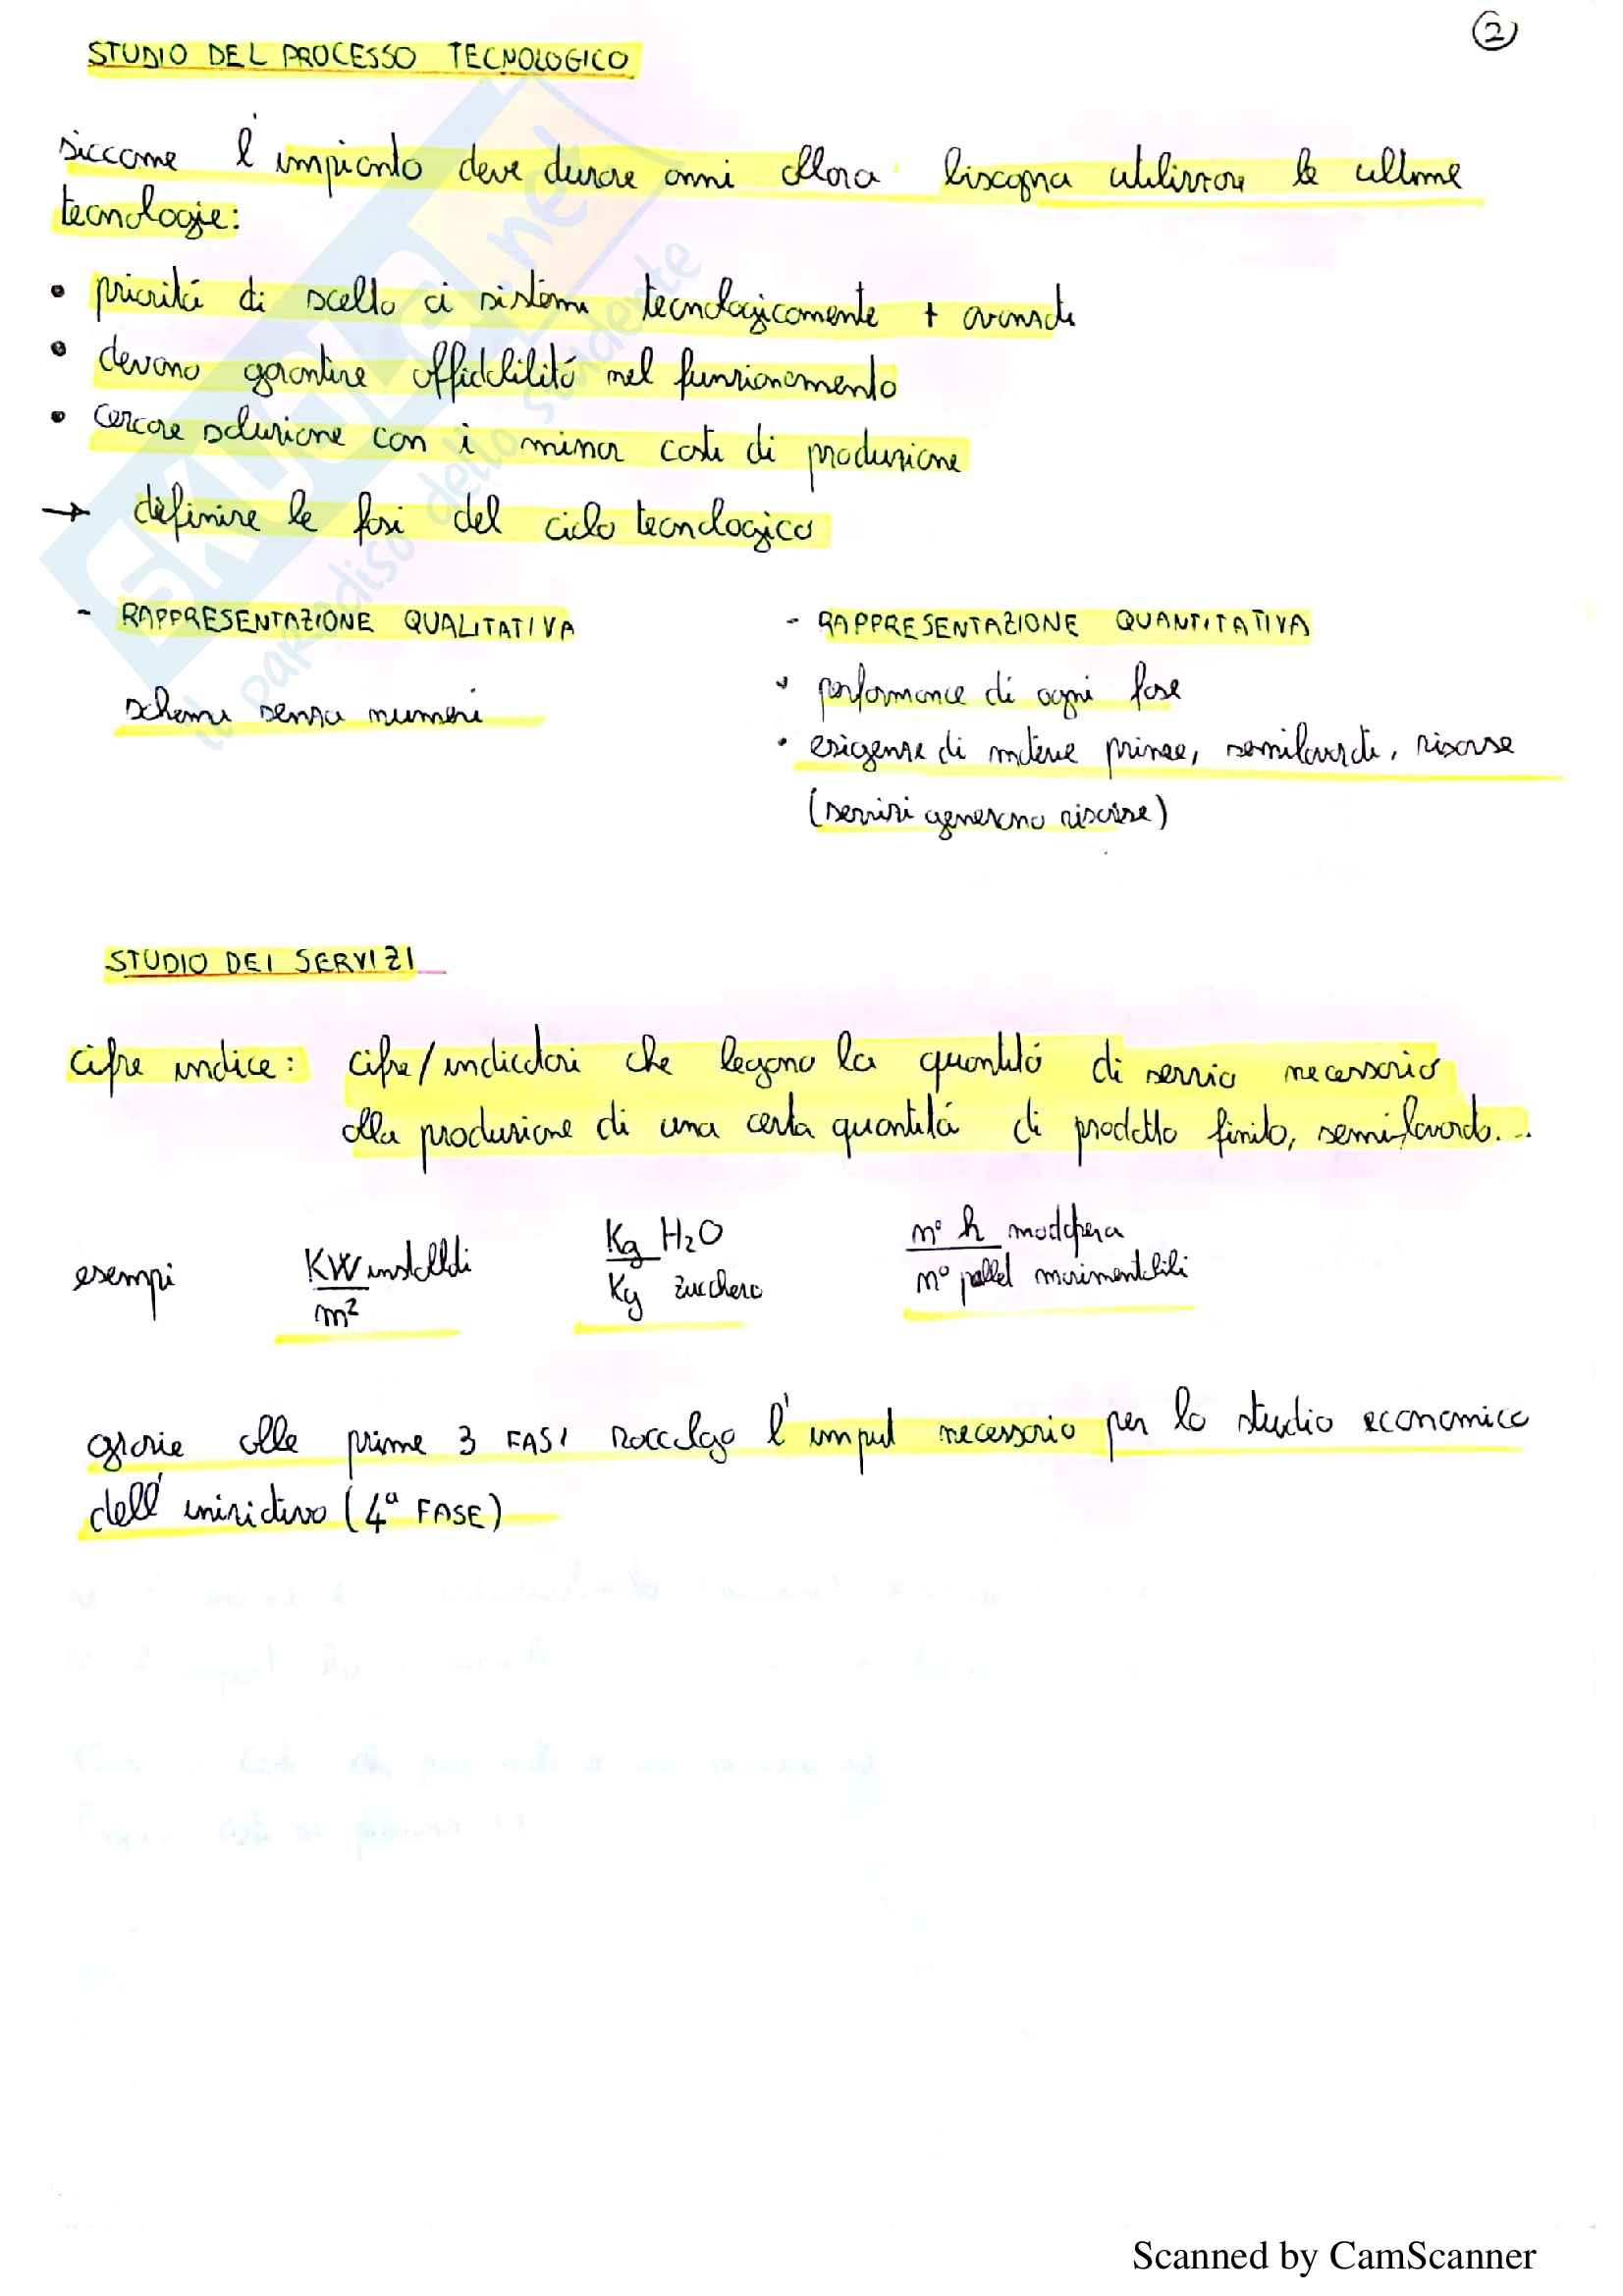 2
STUDIO DEL PROCESSO TECNOLOGICO
siccome l'impianto deve durare anni allora bisogna utilizzare le ultime
tecnologie:
• priorità di scelta ai sistemi tecnologicamente + avanzati
• devono garantire affidabilità nel funzionamento
• cercare soluzione con i minor costi di produzione
→ definire le fasi del ciclo tecnologico
- RAPPRESENTAZIONE QUALITATIVA
schemi senza numeri
- RAPPRESENTAZIONE QUANTITATIVA
• performance di ogni fase
• esigenze di materie prime, semilavorati, risorse
(servizi generano risorse)
STUDIO DEI SERVIZI
cifre indice: cifre/indicatori che legano la quantità di servizio necessario
alla produzione di una certa quantità di prodotto finito, semilavorato...
esempi
KW installati
m²
Kg H₂O
Kg zucchero
n° h manodopera
n° pallet movimentabili
grazie alle prime 3 FASI raccolgo l'input necessario per lo studio economico
dell'iniziativa (4ª FASE)
SKUOLA.net
il paradiso dello studente
Scanned by CamScanner